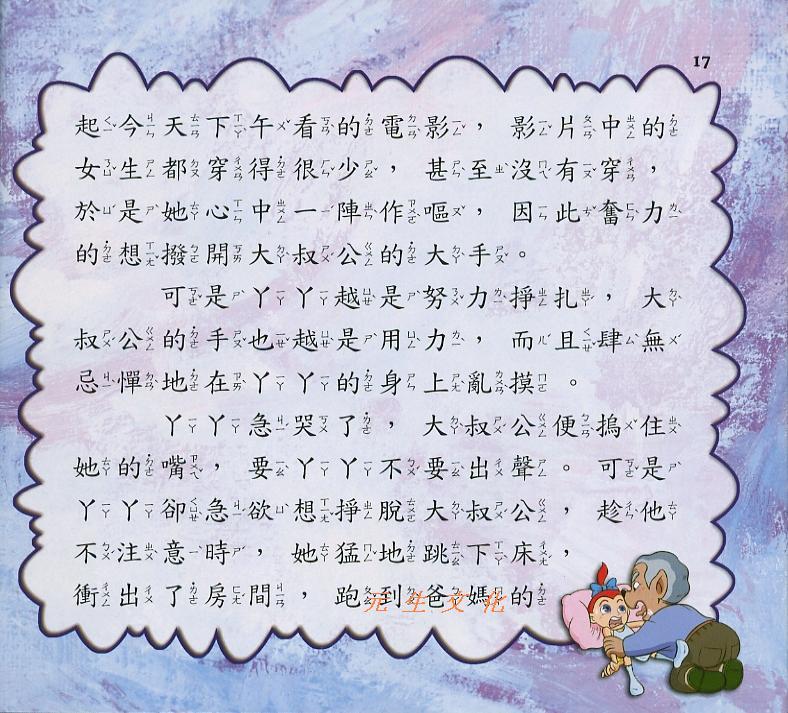 17
起今天下午看的電影，影片中的
女生都穿得很少，甚至沒有穿，
於是她心中一陣作嘔，因此奮力
的想撥開大叔公的大手。
可是丫丫越是努力掙扎，大
叔公的手也越是用力，而且肆無
忌憚地在丫丫的身上亂摸。
丫丫急哭了，大叔公便摀住
她的嘴，要丫丫不要出聲。可是
丫丫卻急欲想掙脫大叔公，趁他
不注意時，她猛地跳下床，
衝出了房間，跑到爸媽的
元生文化